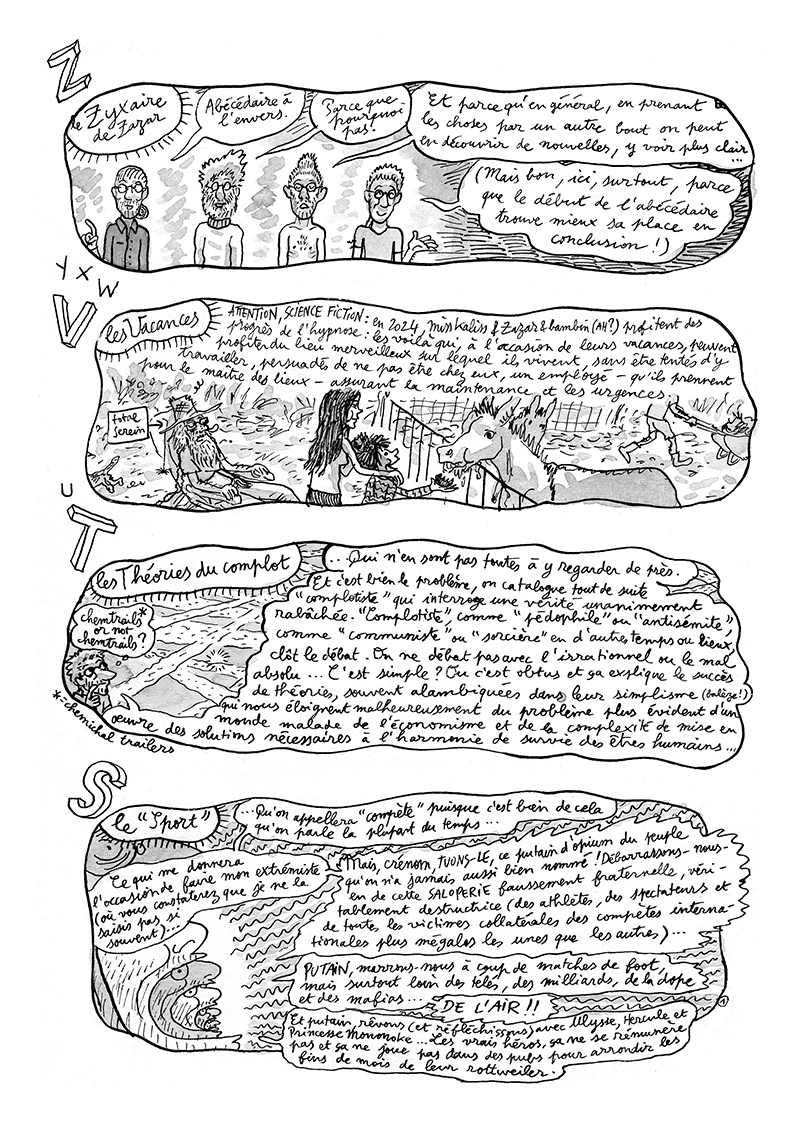 Z
le Zyxaire
de Zazar
Abécédaire à
l'envers.
Parce que
pourquoi
pas.
Et parce qu'en général, en prenant
les choses par un autre bout on peut
en découvrir de nouvelles, y voir plus clair
...
(Mais bon, ici, surtout, parce
que le début de l'abécédaire
trouve mieux sa place en
conclusion !)
Y X W
V
les Vacances
ATTENTION, SCIENCE FICTION : en 2024, Misskaliss & Zazar & bambin (AH?) profitent des
progrès de l'hypnose : les voilà qui, à l'occasion de leurs vacances, peuvent
profiter du lieu merveilleux sur lequel ils vivent, sans être tentés d'y
travailler, persuadés de ne pas être chez eux, un employé – qu'ils prennent
pour le maître des lieux – assurant la maintenance et les urgences.
total
serein
U
T
les Théories du complot
... Qui n'en sont pas toutes à y regarder de près.
Et c'est bien le problème, on catalogue tout de suite
"complotiste" qui interroge une vérité unanimement
rabâchée. "Complotiste", comme "pédophile" ou "antisémite",
comme "communiste" ou "sorcière" en d'autres temps ou lieux,
clôt le débat. On ne débat pas avec l'irrationnel ou le mal
absolu ... C'est simple ? Ou c'est obtus et ça explique le succès
de théories, souvent alambiquées dans leur simplisme (balèze !)
qui nous éloignent malheureusement du problème plus évident d'un
monde malade de l'économisme et de la complexité de mise en
œuvre des solutions nécessaires à l'harmonie de survie des êtres humains...
chemtrails*
or not
chemtrails ?
*: chemichal trailers
S
le "Sport"
...Qu'on appellera "compète" puisque c'est bien de cela
qu'on parle la plupart du temps ...
Ce qui me donnera
l'occasion de faire mon extrémiste
(où vous constaterez que je ne la
saisis pas si
souvent)...
Mais, crénom, TUONS-LE, ce putain d'opium du peuple
qu'on n'a jamais aussi bien nommé ! Débarrassons-nous-
en de cette SALOPERIE faussement fraternelle, véri-
tablement destructrice (des athlètes, des spectateurs et
de toutes les victimes collatérales des compètes interna-
tionales plus mégalos les unes que les autres) ...
PUTAIN, marrons-nous à coup de matches de foot,
mais surtout loin des télés, des milliards, de la dope
et des mafias ...
DE L'AIR !!
Et putain, rêvons (et réfléchissons) avec Ulysse, Hercule et
Princesse Mononoke ... Les vrais héros, ça ne se rémunère
pas et ça ne joue pas dans des pubs pour arrondir les
fins de mois de leur rottweiler.
1